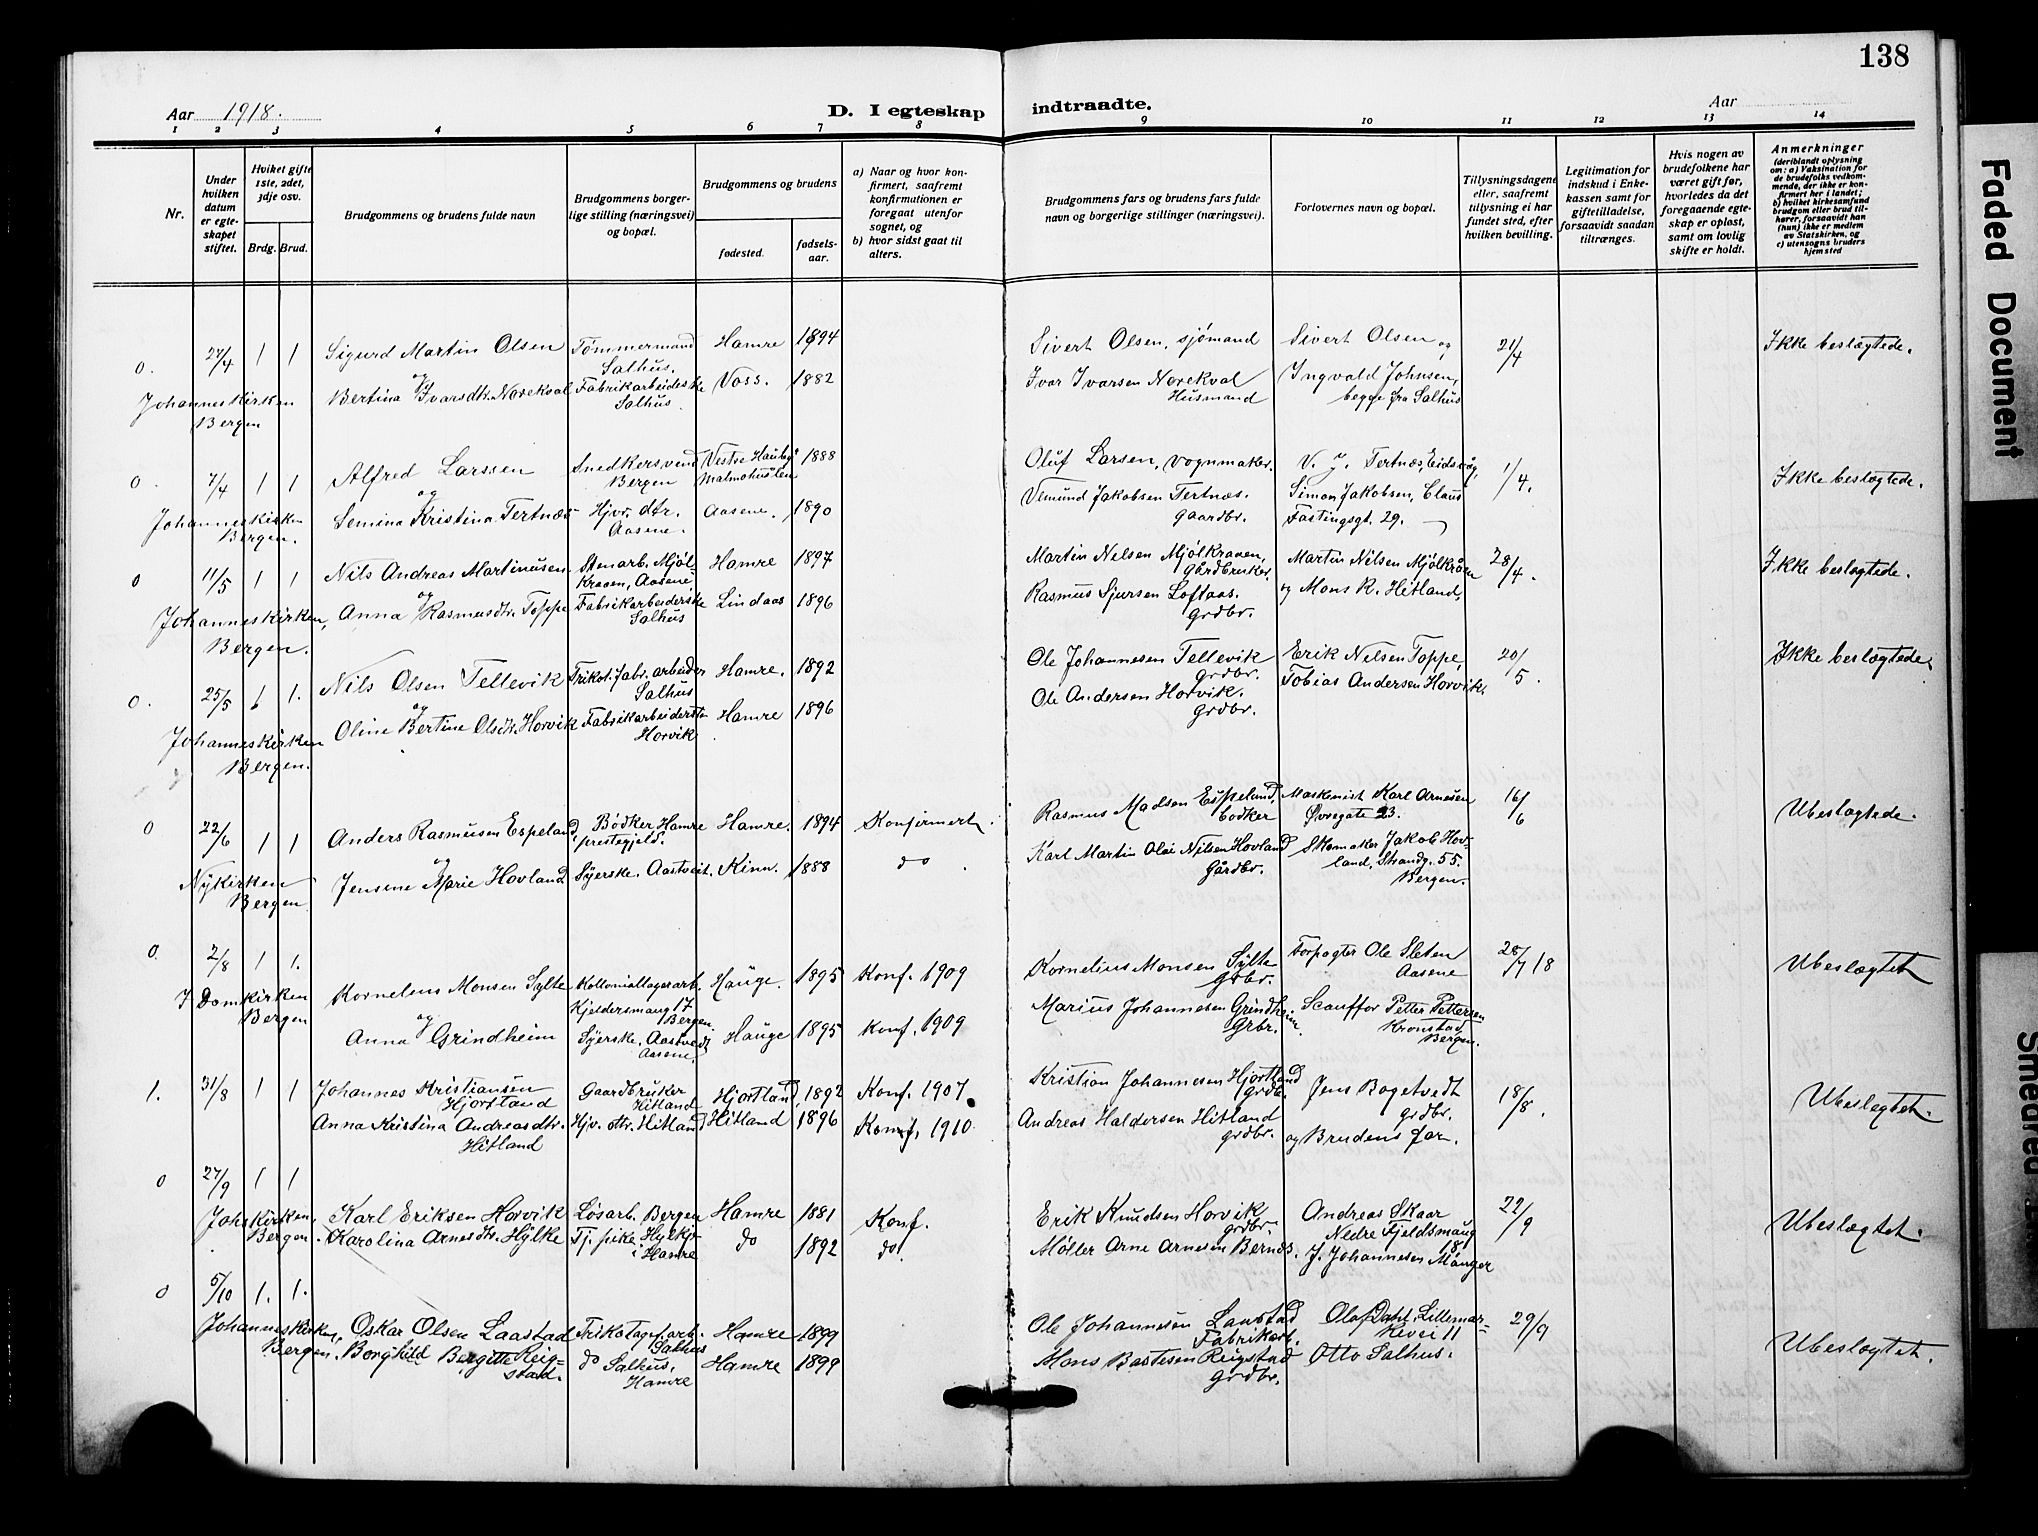 138
Aar 1918.
D. I egteskap indtraadte.
Aar
1 2 3 4 5 6 7 8 9 10 11 12 13 14
Nr.
Under hvilken datum er egteskapet stiftet.
Hviket gifte 1ste, 2det, 3dje osv.
Brdg. Brud.
Brudgommens og brudens fulde navn
Brudgommens borgerlige stilling (næringsvei) og bopæl.
Brudgommens og brudens
fødested.
fødselsaar.
a) Naar og hvor konfirmert, saafremt konfirmationen er foregaat utenfor sognet, og
b) hvor sidst gaat til alters.
Brudgommens fars og brudens fars fulde navn og borgerlige stillinger (næringsvei).
Forlovernes navn og bopæl.
Tillysningsdagene eller, saafremt tillysning ei har fundet sted, efter hvilken bevilling.
Legitimation for indskud i Enkekassen samt for giftetilladelse, forsaavidt saadan tiltrænges.
Hvis nogen av brudefolkene har været gift før, hvorledes da det foregaaende egteskap er opløst, samt om lovlig skifte er holdt.
Anmerkninger
(deriblandt oplysning om: a) Vaksination for de brudefolks vedkommende, der ikke er konfirmert her i landet; b) hvilket kirkesamfund brudgom eller brud tilhører, forsaavidt han (hun) ikke er medlem av Statskirken, og c) utensogns bruders hjemsted
0. 27/4 1 1 Sigurd Martin Olsen Tømmermand Salhus. Hamre 1894 Sivert Olsen, sjømand Sivert Olsen og 21/4 Ikke beslægtede.
Johanneskirken Bergen og Bertina Ivarsdtr. Norekval Fabrikarbeiderske Salhus. Voss. 1882 Ivar Ivarsen Norekval Husmand Ingvald Johnsen, begge fra Salhus
0. 7/4 1 1 Alfred Larssen Snedkersvend Bergen Malmohuslen 1888 Oluf Larsen, vognmaker. V. J. Tertnæs, Eidsvåg, 1/4. Ikke beslægtede.
Johanneskirken Bergen. og Semina Kristina Tertnæs Hjv. dtr. Aasene. Aasene. 1890 Vemund Jakobsen Tertnæs. gaardbr. Simon Jakobsen, Claus Fastingsgt. 29.
0 11/5 1 1 Nils Andreas Martinusen Stenarb. Mjølkraaen, Aasene. Hamre 1897 Martin Nelsen Mjølkraaen, gårdbruker. Martin Nilsen Mjølkråen 28/4. Ikke beslægtede.
Johanneskirken, Bergen. og Anna Rasmusdtr. Toppe Fabrikarbeiderske Salhus Lindaas 1896 Rasmus Sjursen Loftaas. grdbr. og Mons R. Hitland,
0. 25/5 1 1. Nils Olsen Tellevik Trikot. fabr. arbeider Salhus Hamre. 1892 Ole Johannesen Tellevik grdbr. Erik Nelsen Toppe, 20/5. Ikke beslægtede.
Johanneskirken Bergen. og Oline Bertine Olsdtr. Horvik Fabrikarbeiderske Horvik Hamre 1896 Ole Andersen Horvik. grdbr. Tobias Andersen Horvik.
0 22/6 1 1 Anders Rasmusen Espeland, Bødker Hamre prestegjeld. Hamre. 1894 Konfirmert. Rasmus Madsen Espeland, bødker Maskenist Karl Arnesen Øvregate 23. 16/6 Ubeslægtede.
Nykirken Bergen og Jensene Marie Hovland Syerske. Aastveit. Kinn. 1888 do Karl Martin Olai Nilsen Hovland Gårdbr. Skomaker Jakob Hovland, Strandg. 55. Bergen.
0. 2/8 1 1. Kornelius Monsen Sylte Koloniallagerarb. Kjeldersmaug 17 Bergen. Hauge. 1895 Konf. 1909 Kornelius Monsen Sylte grbr. Forpagter Ole Sleten Aasene 28/7 18 Ubeslægtet
I Domkirken Bergen og Anna Grindheim Syerske. Aastvedt Aasene. Hauge 1895 Konf. 1909 Marius Johannesen Grindheim. Grbr. Scauffør Petter Pettersen Kronstad Bergen.
1. 31/8 1 1 Johannes Kristiansen Hjortland Gaardbruker Hitland Hjortland, 1892 Konf. 1907. Kristian Johannesen Hjortland grdbr. Jens Bogetvedt grdbr. 18/8. Ubeslægtet.
Anna Kristina Andreasdtr. Hitland Hjv. dtr. Hitland Hitland 1896 Konf. 1910. Andreas Haldorsen Hitland grdbr. og Brudens far.
0 27/9 1 1
Johskirken. Bergen. Karl Eriksen Horvik Løsarb. Bergen Hamre 1881 Konf. Erik Knudsen Horvik grdbr. Andreas Skaar Nedre Fjeldsmaug 18 22/9 Ubeslægtet.
Karolina Arnesdtr. Hylke Tj. pike. Hylkje i Hamre do 1892 do. Møller Arne Arnesen Bernes. J. Johannesen Manger
0 5/10 1. 1.
Johanneskirken, Bergen. Oskar Olsen Laastad Trikotagefarb. Salhus Hamre 1899 Ole Johannesen Laastad Fabrikarb. Olaf Dahl, Lillemarkevei 11 29/9 Ubeslægtet.
Borghild Bergitte Reigstad. do Salhus, Hamre Hamre 1899 Mons Bastesen Reigstad Grdbr. Otto Salhus.
Faded Document
Smeared